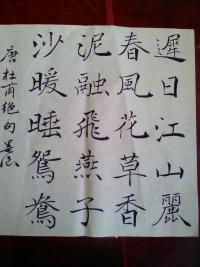 遲日江山麗
春風花草香
泥融飛燕子
沙暖睡鴛鴦
唐杜甫絕句